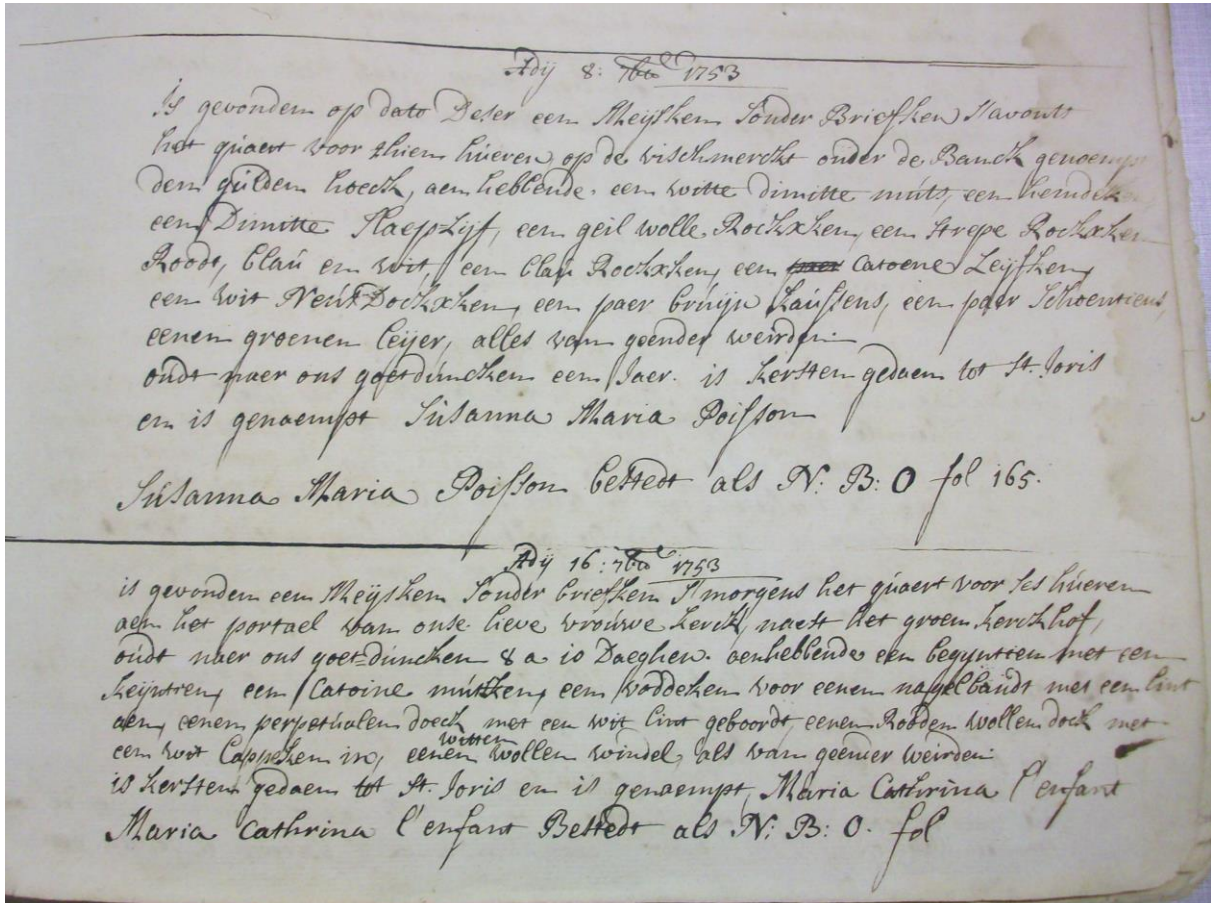 Adij 8: 7bre 1753
Is gevonden op dato Deser een Meijsken Sonder Briefken Savonts
het quaert voor thien hueren, op de vischmerckt onder de Banck genoempt
den gulden hoeck, aen hebbende een witte dimitte muts, een hemdeken,
een Dimitte Slaeplijf, een geil wolle Rockxken, een strepe Rockxken
Roodt, blau en wit, een blau Rockxken, een catoene Leijfken,
een wit Neusdockxken, een paer bruijn kaussens, een paer Schoentiens,
eenen groenen leijer, alles van geender weirden
oudt naer ons goetduncken een Jaer. is kersten gedaen tot St. Joris
en is genaempt Susanna Maria Poisson
Susanna Maria Poisson bestedt als N: B: O fol 165.
Adij 16: 7bre 1753
is gevonden een Meijsken Sonder briefken S'morgens het quaert voor ses hueren
aen het portael van onse lieve vrouwe kerck, naest het groen kerckhof,
oudt naer ons goet=duncken 8 a 10 Daeghen. aenhebbende een begyntien met een
keijntien, een Catoine mutsken, een voddeken voor eenen nagelbandt met een lint
aen, eenen perpethalen doeck met een wit lint geboordt, eenen Rooden wollen dock met
een wit Cappeken in, eenen witten wollen windel, als van geender weirden
is kersten gedaen tot St. Joris en is genaempt, Maria Cathrina l'enfant
Maria Cathrina l'enfant Bestedt als N: B: O. fol